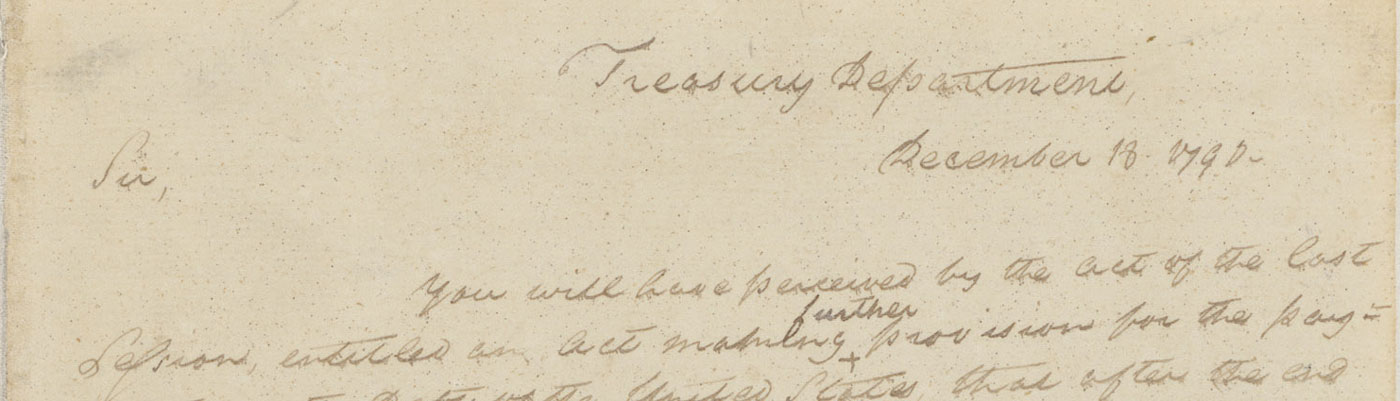 Treasury Department,
December 18. 1790.
Sir,
You will have perceived by the act of the last
further
Session, entitled an act making + provision for the pay=
Debts of the United States, that after the end